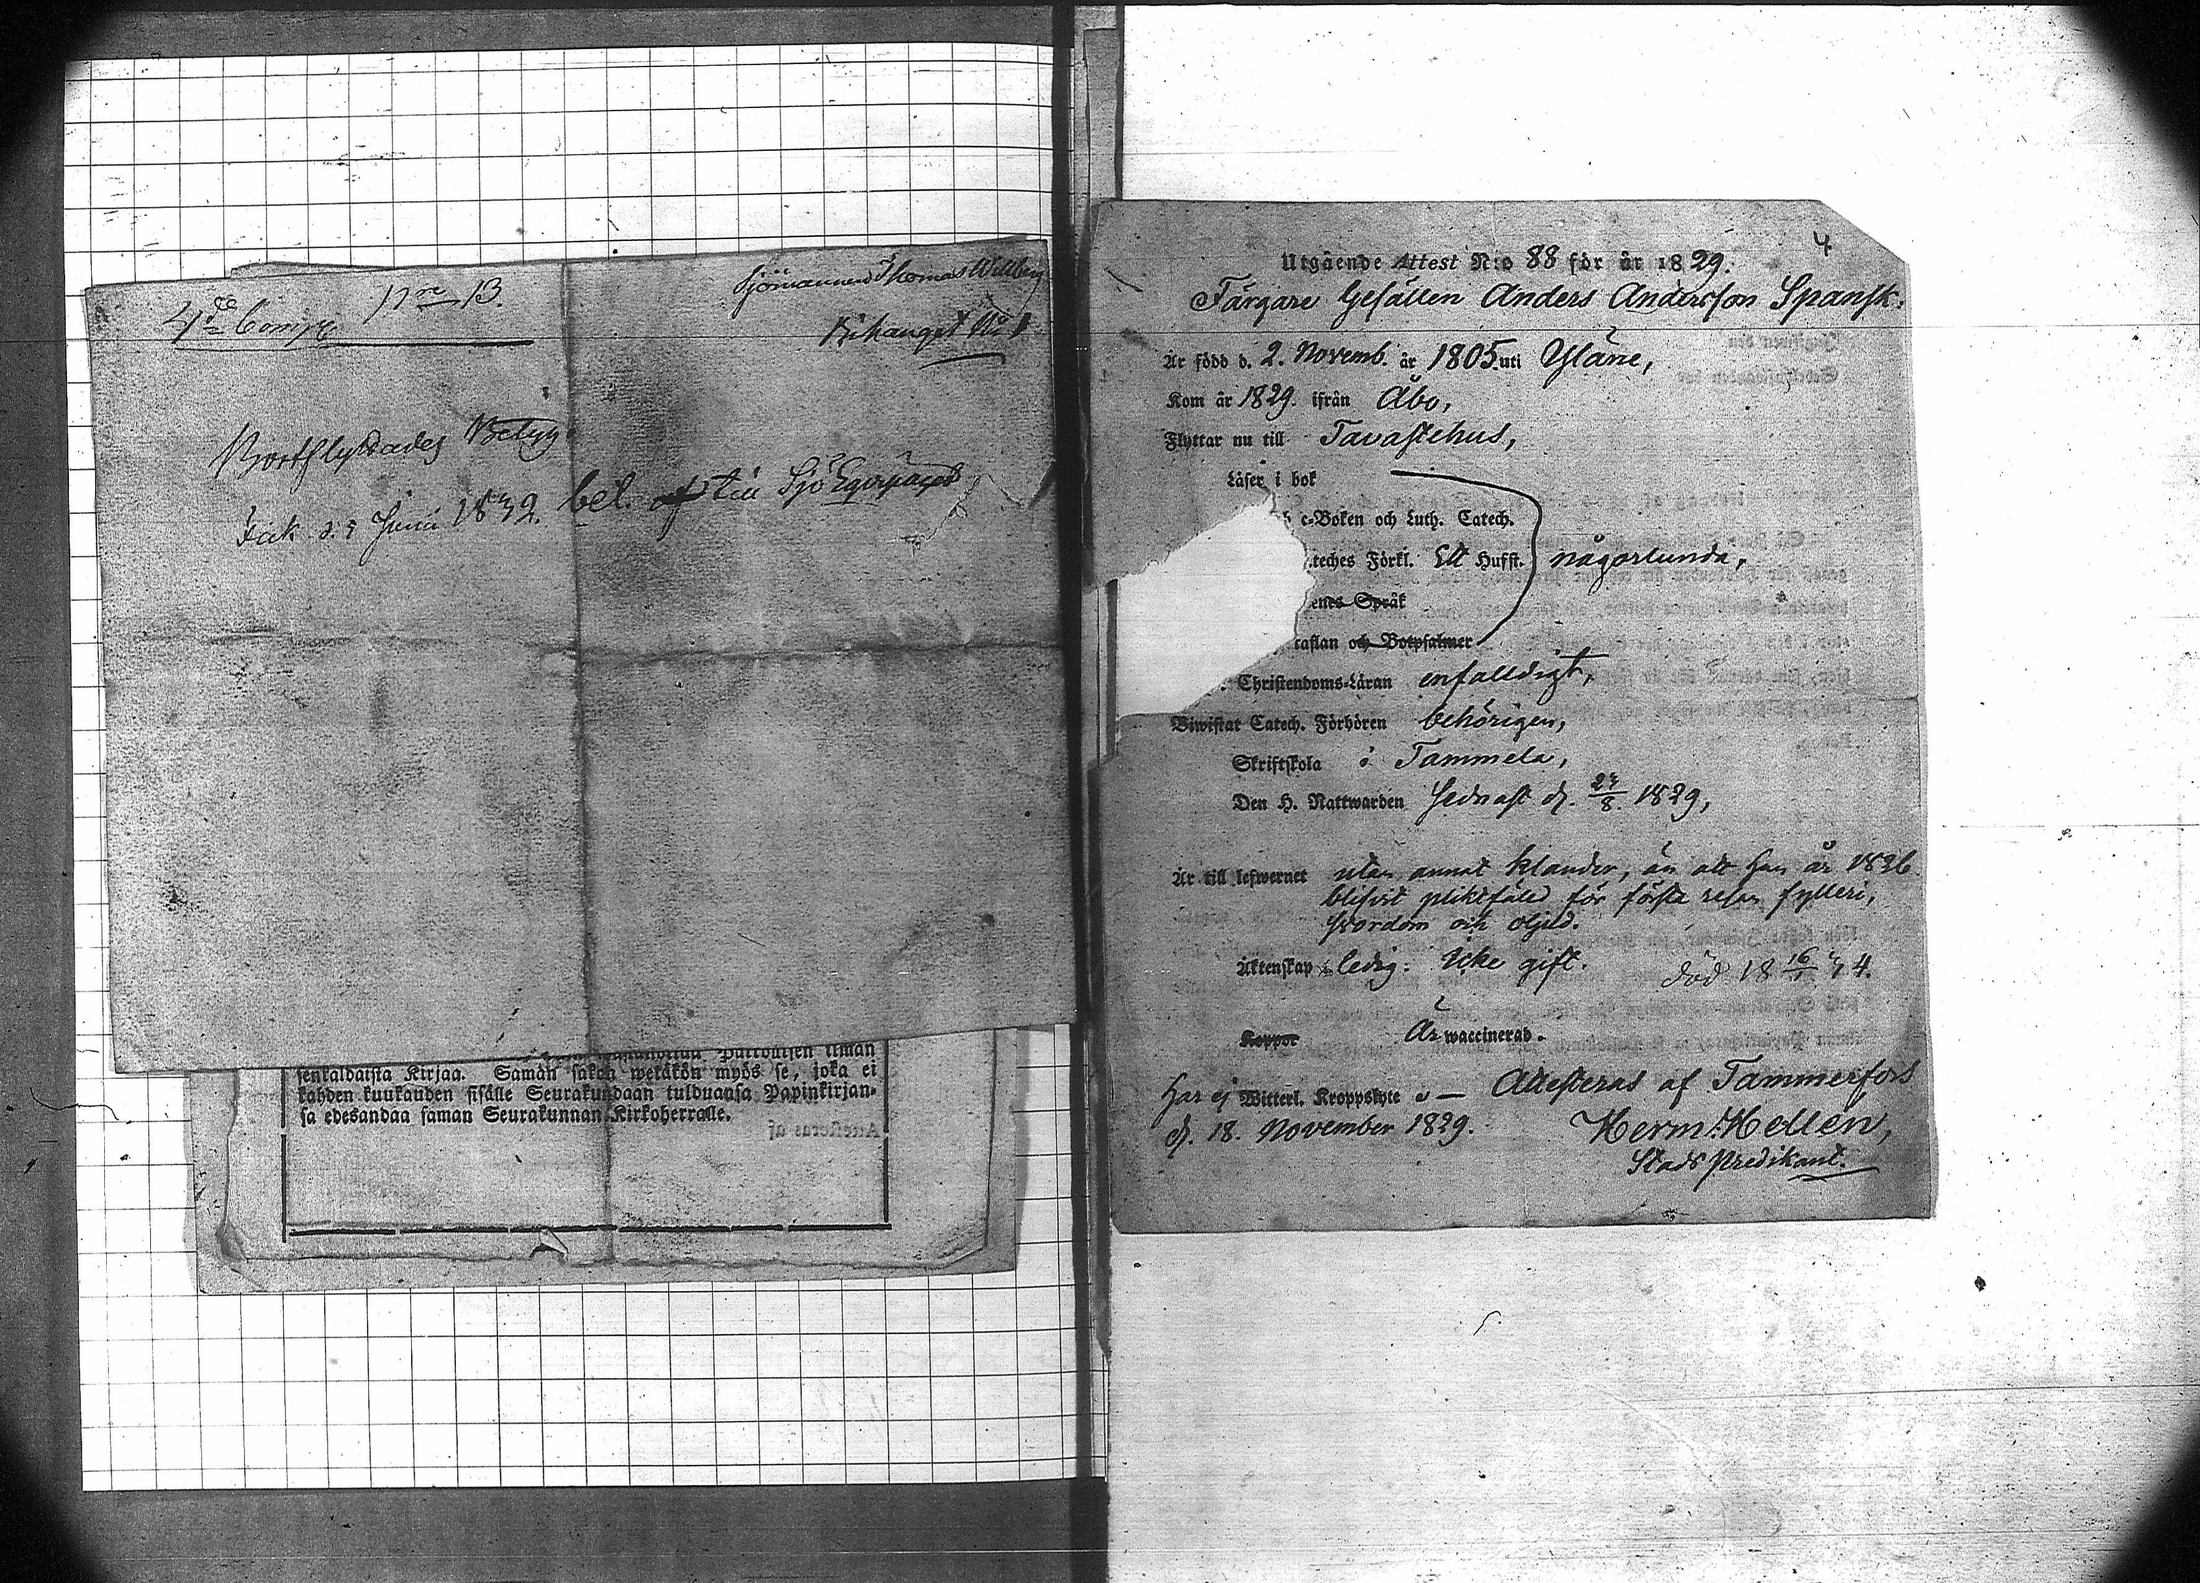 4de Comp. Nre 13.
Sjömannen Thomas Willberg
Bihanget No 1
Bortflyttades Betyg
Fick d. 5 Junii 1832. bet. af till Sjö Equipaget
senkaldaista Kirjaa. Samän sakon wetäkön myös se, joka ei
kahden kuukauden sisälle Seurakundaan tulduansa Papinkirjan-
sa edesandaa saman Seurakunnan Kirkoherralle.
Attesteras af
4
Utgående Attest N:o 88 för år 1829.
Färgare Gesällen Anders Andersson Spansk.
Är född d. 2. Novemb. år 1805. uti Yläne,
Kom år 1829. ifrån Åbo,
Flyttar nu till Tavastehus,
Läser i bok
c-Boken och Luth. Catech.
teches Förkl. Hufst. någorlunda,
enes Språk
taflan och Botpsalmer
Christendoms-Läran enfalldigt,
Biwistat Catech. Förhören behörigen,
Skriftskola i Tammela,
Den H. Nattwarden sednast d. 23/8. 1829,
Är till lefwernet utan annat klander, än att han år 1826
blifvit pliktfäld för första resan fylleri,
svordom och oljud.
Äktenskap ledig: icke gift. död 18 16/1 34.
Koppor Är waccinerad.
Har ej Witterl. Kroppslyte — Attesteras af Tammerfors
d. 18. November 1829. Herm: Hellén,
Stads Predikant.